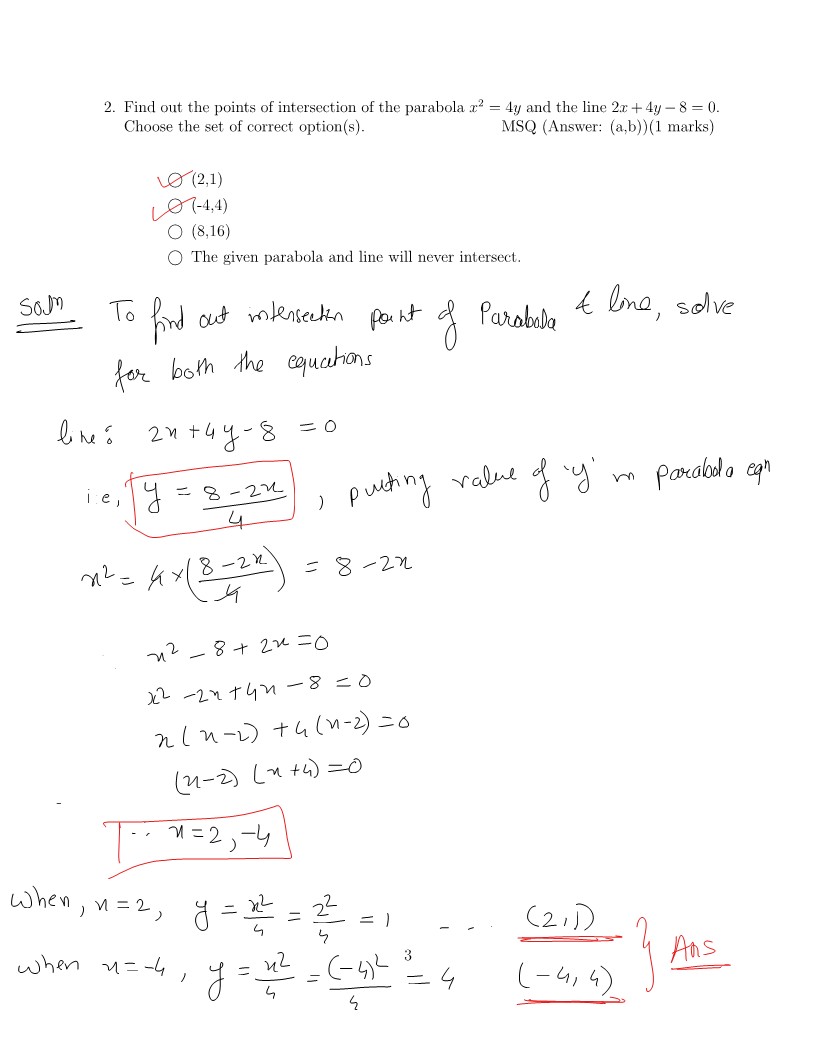 2. Find out the points of intersection of the parabola x² = 4y and the line 2x + 4y − 8 = 0.
Choose the set of correct option(s). MSQ (Answer: (a,b))(1 marks)
(2,1)
(-4,4)
(8,16)
The given parabola and line will never intersect.
Soln To find out intersection point of Parabola & line, solve
for both the equations
line: 2x + 4y - 8 = 0
i.e, y = (8 - 2x)/4 , putting value of 'y' in parabola eqn
x² = 4 × ((8 - 2x)/4) = 8 - 2x
x² - 8 + 2x = 0
x² - 2x + 4x - 8 = 0
x(x-2) + 4(x-2) = 0
(x-2) (x+4) = 0
∵ x = 2, -4
When, x = 2, y = x²/4 = 2²/4 = 1 --- (2,1)
when x = -4, y = x²/4 = (-4)²/4 = 4 (-4, 4) } Ans
3